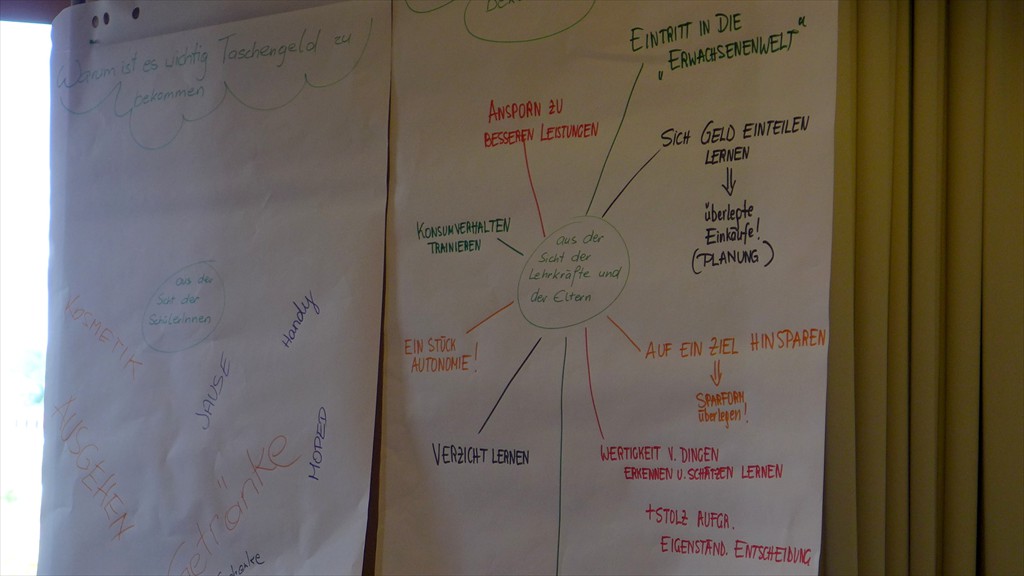 Warum ist es wichtig Taschengeld zu
bekommen
aus der
Sicht der
SchülerInnen
KOSMETIK
Handy
JAUSE
AUSGEHEN
MOPED
Getränke
EINTRITT IN DIE
„ERWACHSENENWELT“
ANSPORN ZU
BESSEREN LEISTUNGEN
SICH GELD EINTEILEN
LERNEN
überlepte
Einkäufe!
(PLANUNG)
KONSUMVERHALTEN
TRAINIEREN
aus der
Sicht der
Lehrkräfte und
der Eltern
EIN STÜCK
AUTONOMIE!
AUF EIN ZIEL HINSPAREN
SPARFORM
überlegen!
VERZICHT LERNEN
WERTIGKEIT V. DINGEN
ERKENNEN U. SCHÄTZEN LERNEN
+STOLZ AUFGR.
EIGENSTÄND. ENTSCHEIDUNG